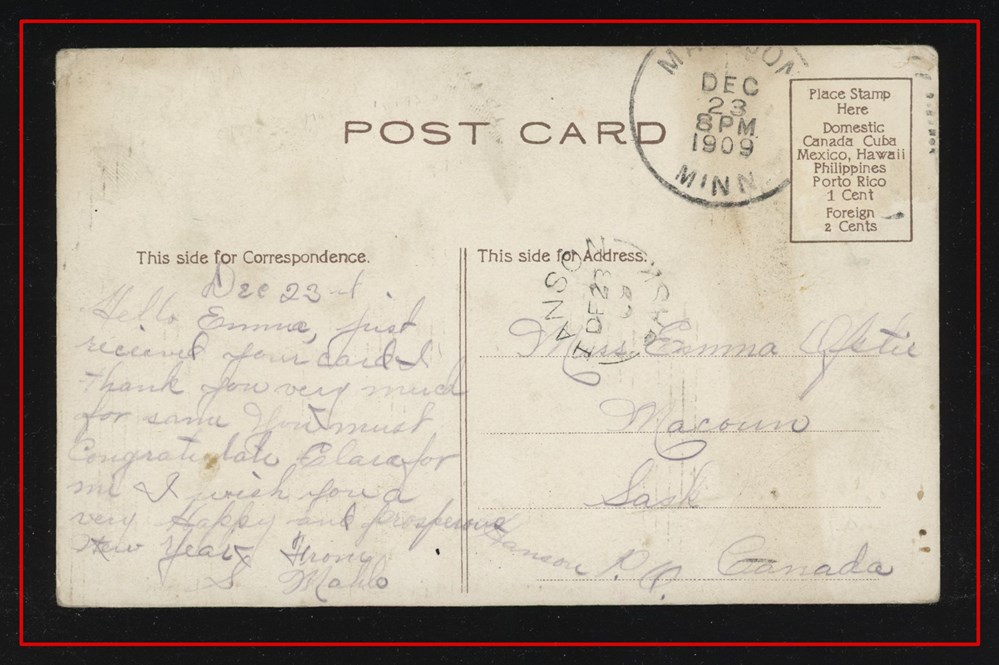 POST CARD
DEC
23
8 PM
1909
MINN
Place Stamp
Here
Domestic
Canada Cuba
Mexico, Hawaii
Philippines
Porto Rico
1 Cent
Foreign
2 Cents
This side for Correspondence.
Dec 23
Hello Emma, just
recieved your card &
thank you very much
for same You must
Congratulate Clara for
me & I wish you a
very Happy and prosperous
New Year, From
This side for Address.
HANSON
DEC 23
SASK
Miss Emma
Macoun
Sask
Hanson P. O.
Canada